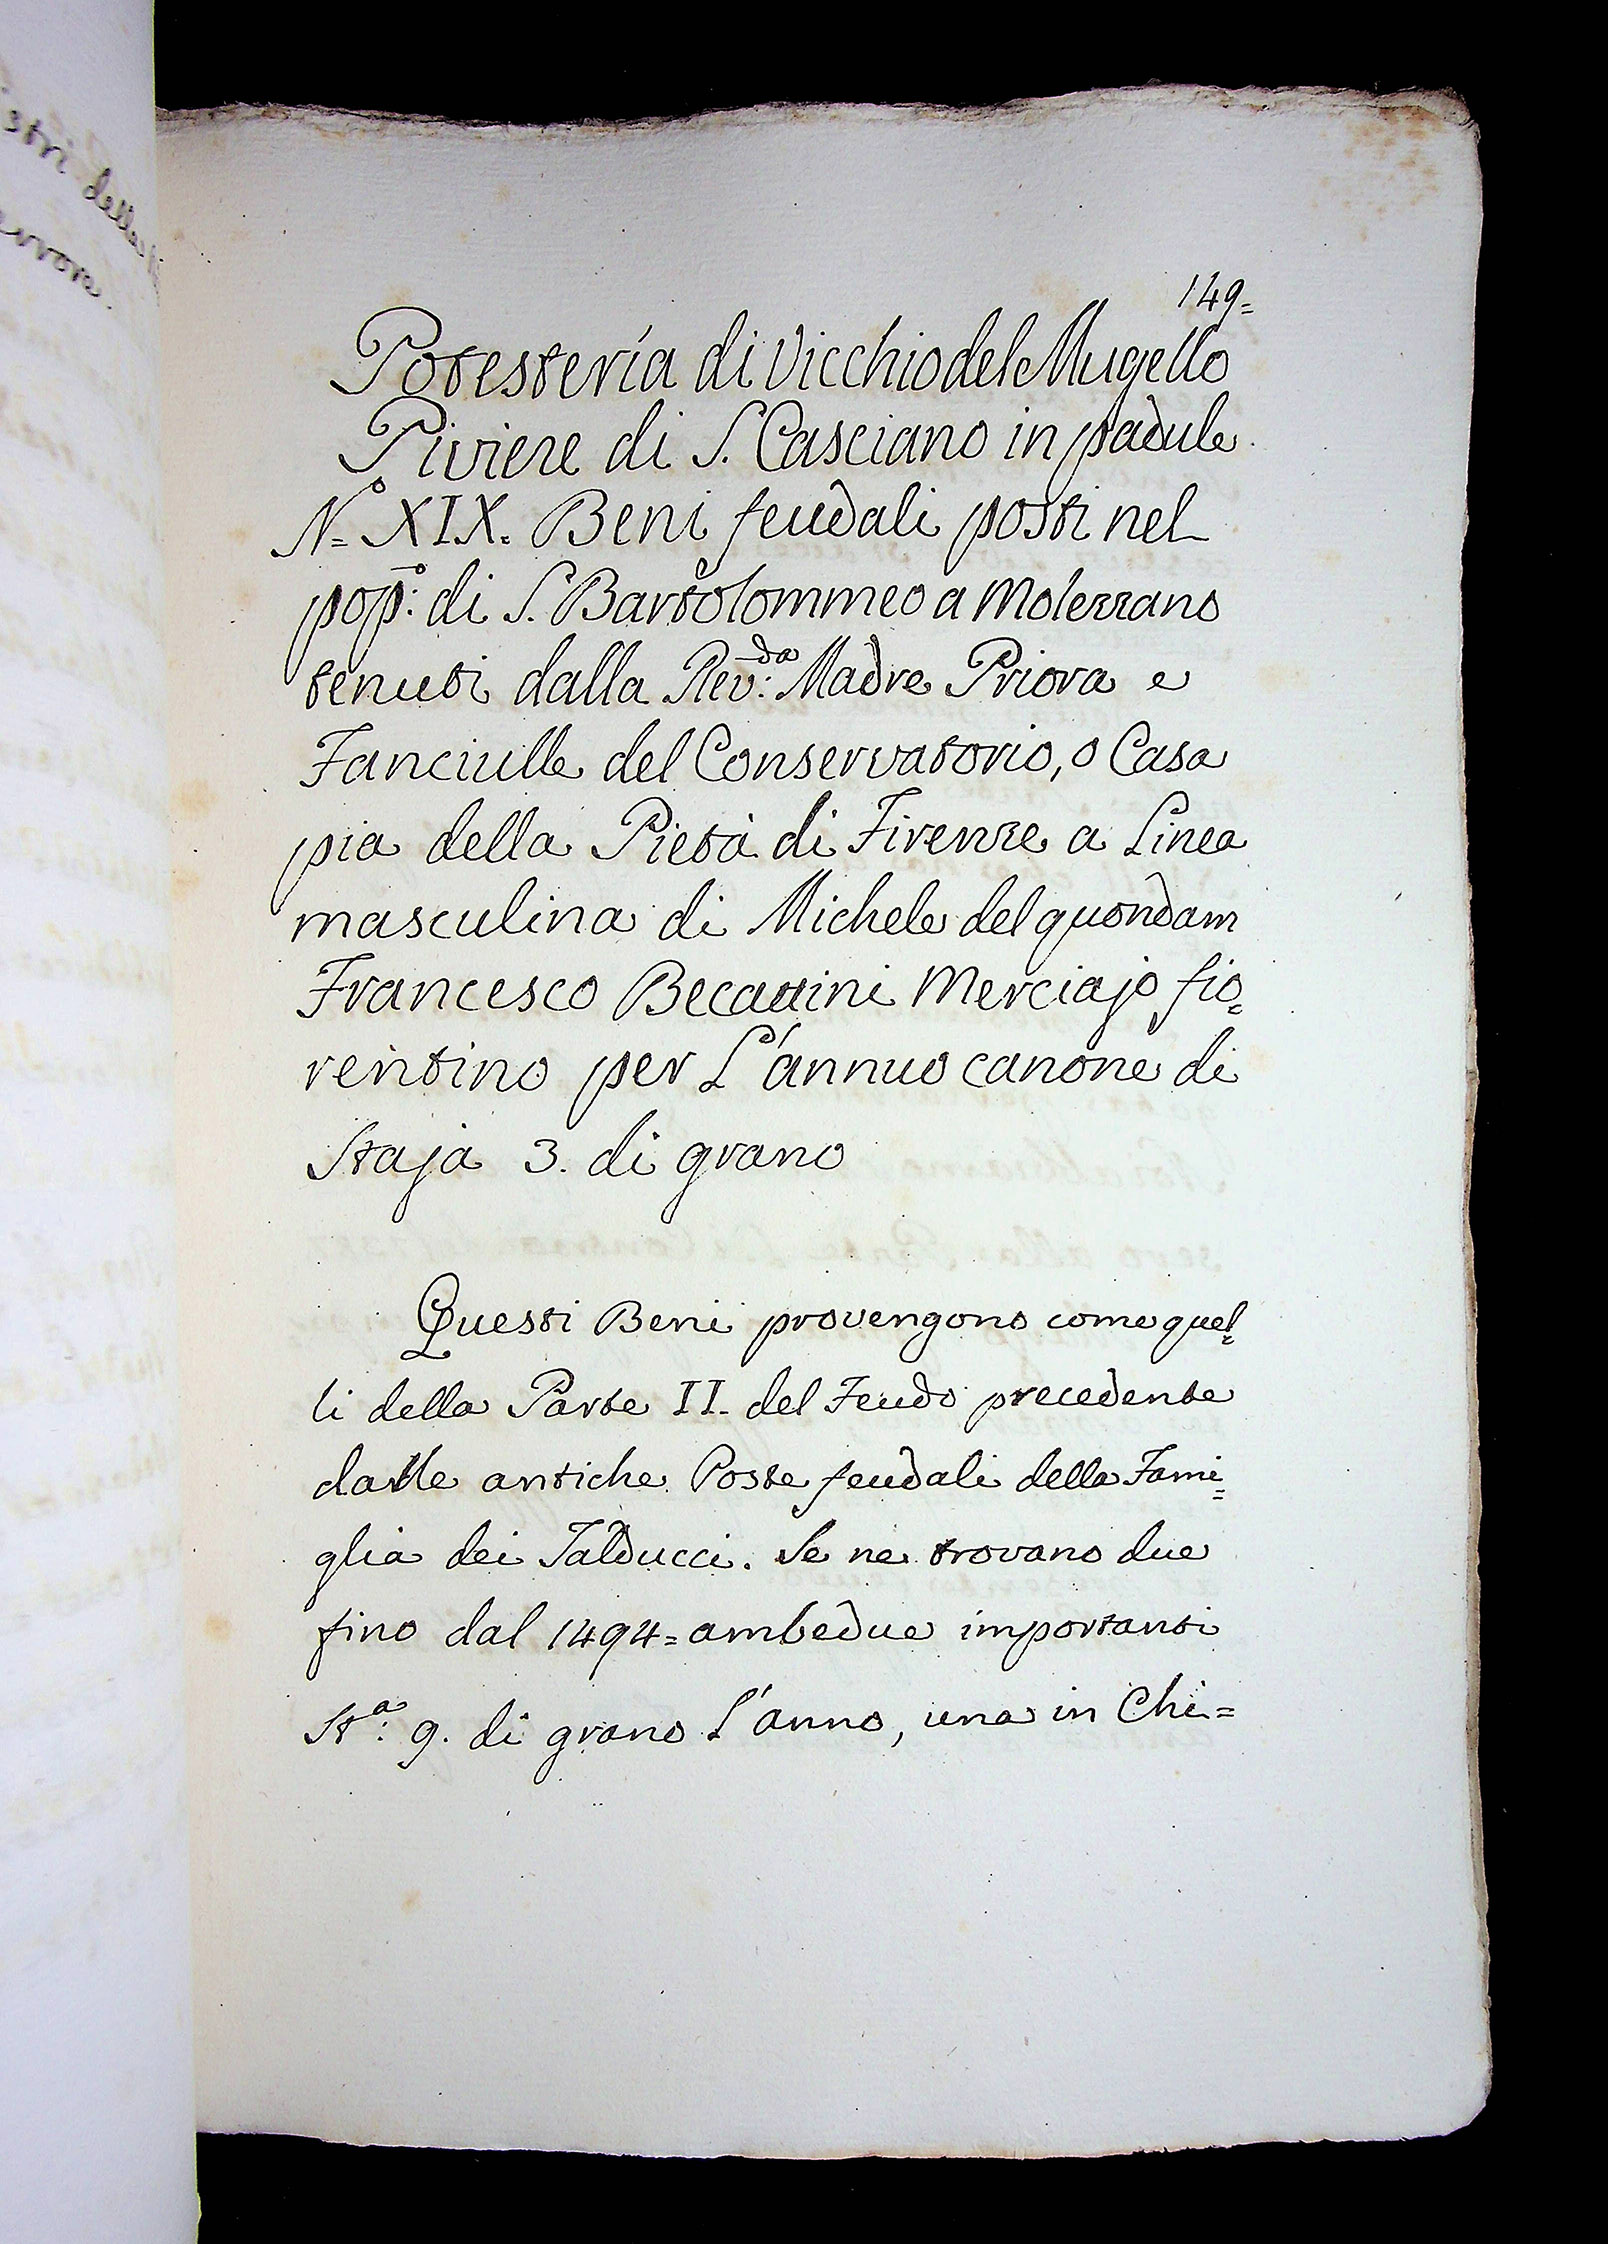 149=
Potesteria di Vicchio del Mugello
Piviere di S. Casciano in padule
N.º XIX. Beni feudali posti nel
popº: di S. Bartolommeo a Molezzano
tenuti dalla Rev:da Madre Priora e
Fanciulle del Conservatorio, o Casa
pia della Pietà di Firenze a Linea
masculina di Michele del quondam
Francesco Becattini Merciajo fio=
rentino per L'annuo canone di
Staja 3. di grano
Questi Beni provengono come quel=
li della Parte II. del Feudo precedente
dalle antiche Poste feudali della Fami=
glia dei Talducci. Se ne trovano due
fino dal 1494= ambedue importanti
Stª: 9. di grano L'anno, una in Chi=